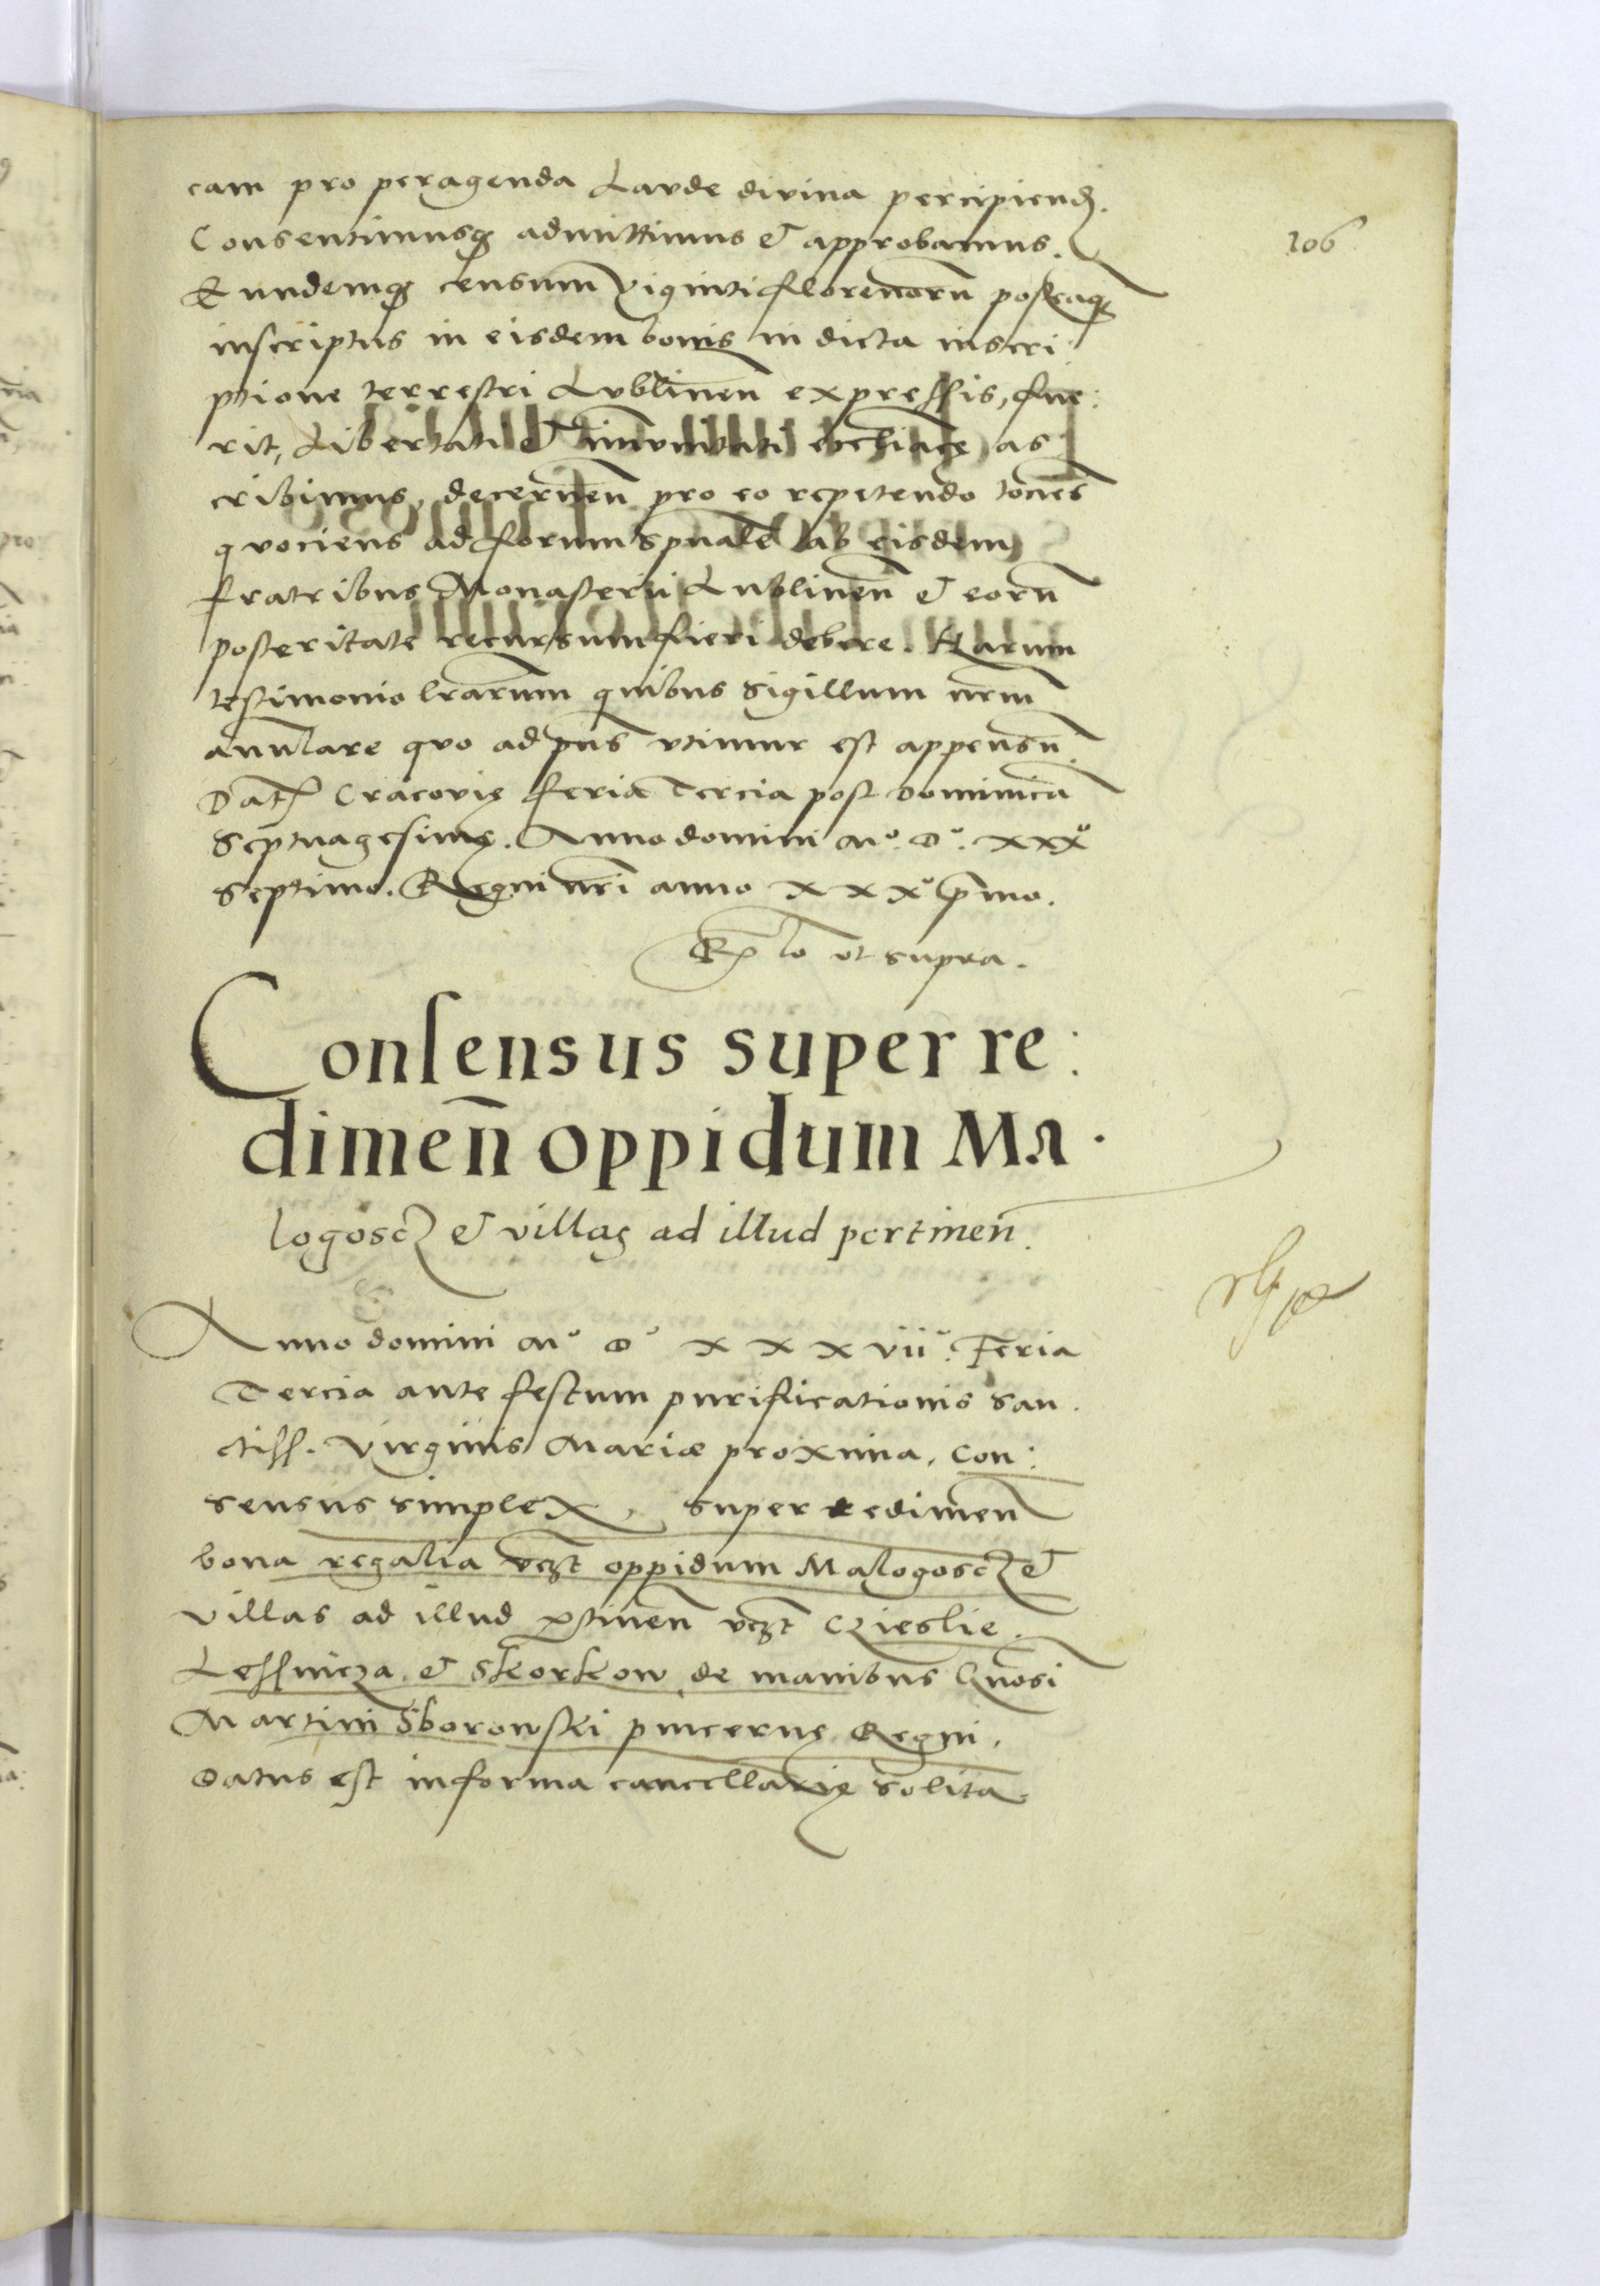 cam pro peragenda Laude divina percipiend.
Consentimusq admittimus et approbamus.
106
Eundemq censum viginti florenorū posteaq
inscriptus in eisdem bonis in dicta inscri:
ptione terrestri Lublineñ expressis, fue:
rit, Libertati et imunitati ecclīasticę as
cribimus, decerneñ pro eo repetendo tocies
quociens ad forum spūale ab eisdem
fratribus Monasterii Lublineñ et eorū
posteritate recursum fieri debere. Harum
testimonio lrārum quibus Sigillum nrm̄
annulare quo ad pn̄s utimur est appensū
Dat Cracovię feria Tercia post dominicā
Septuagesimę. Anno domini Mº. Dº. xxxº
septimo. Regni nrī anno xxxº p̄mo.
Rº lo ut supra.
Consensus super re:
dimen̄ oppidum Ma.
logoscz et villas ad illud pertinen̄.
Anno domini Mº Dº xxxviiº. Feria
Tercia ante festum purificationis san.
ctiss. Virginis Mariæ proxima. Con:
sensus simplex, super redimen̄
bona regalia vczt oppidum Malogoscz et
villas ad illud ptinen̄ vczt Czieslie.
Lessnicza et Skorkow de manibus Gnosi
Martini Sborowski pincernę Regni.
Datus est in forma cancellarię solita.